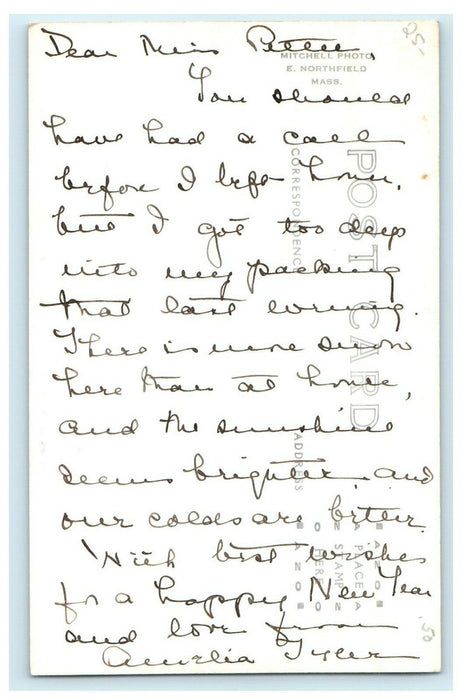 Dear Miss Pettee,
You should
have had a call
before I left home,
but I got too deep
into my packing
that last evening.
There is more snow
here than at home,
and the sunshine
seems brighter and
our colds are better.
With best wishes
for a happy New Year
and love from
Amelia Tyler
MITCHELL PHOTO
E. NORTHFIELD
MASS.
POST CARD
CORRESPONDENCE
ADDRESS
AZO
PLACE
STAMP
HERE
AZO
25-
.50